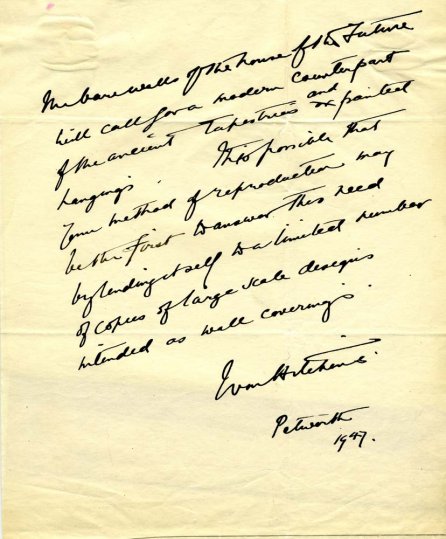 The bare walls of the house of the Future
will call for a modern counterpart
of the ancient tapestries and painted
hangings. It is possible that
your method of reproduction may
be the first to answer this need
by lending itself to a limited number
of copies of large scale designs
intended as wall coverings.
Ivon Hitchens.
Petworth
1947.